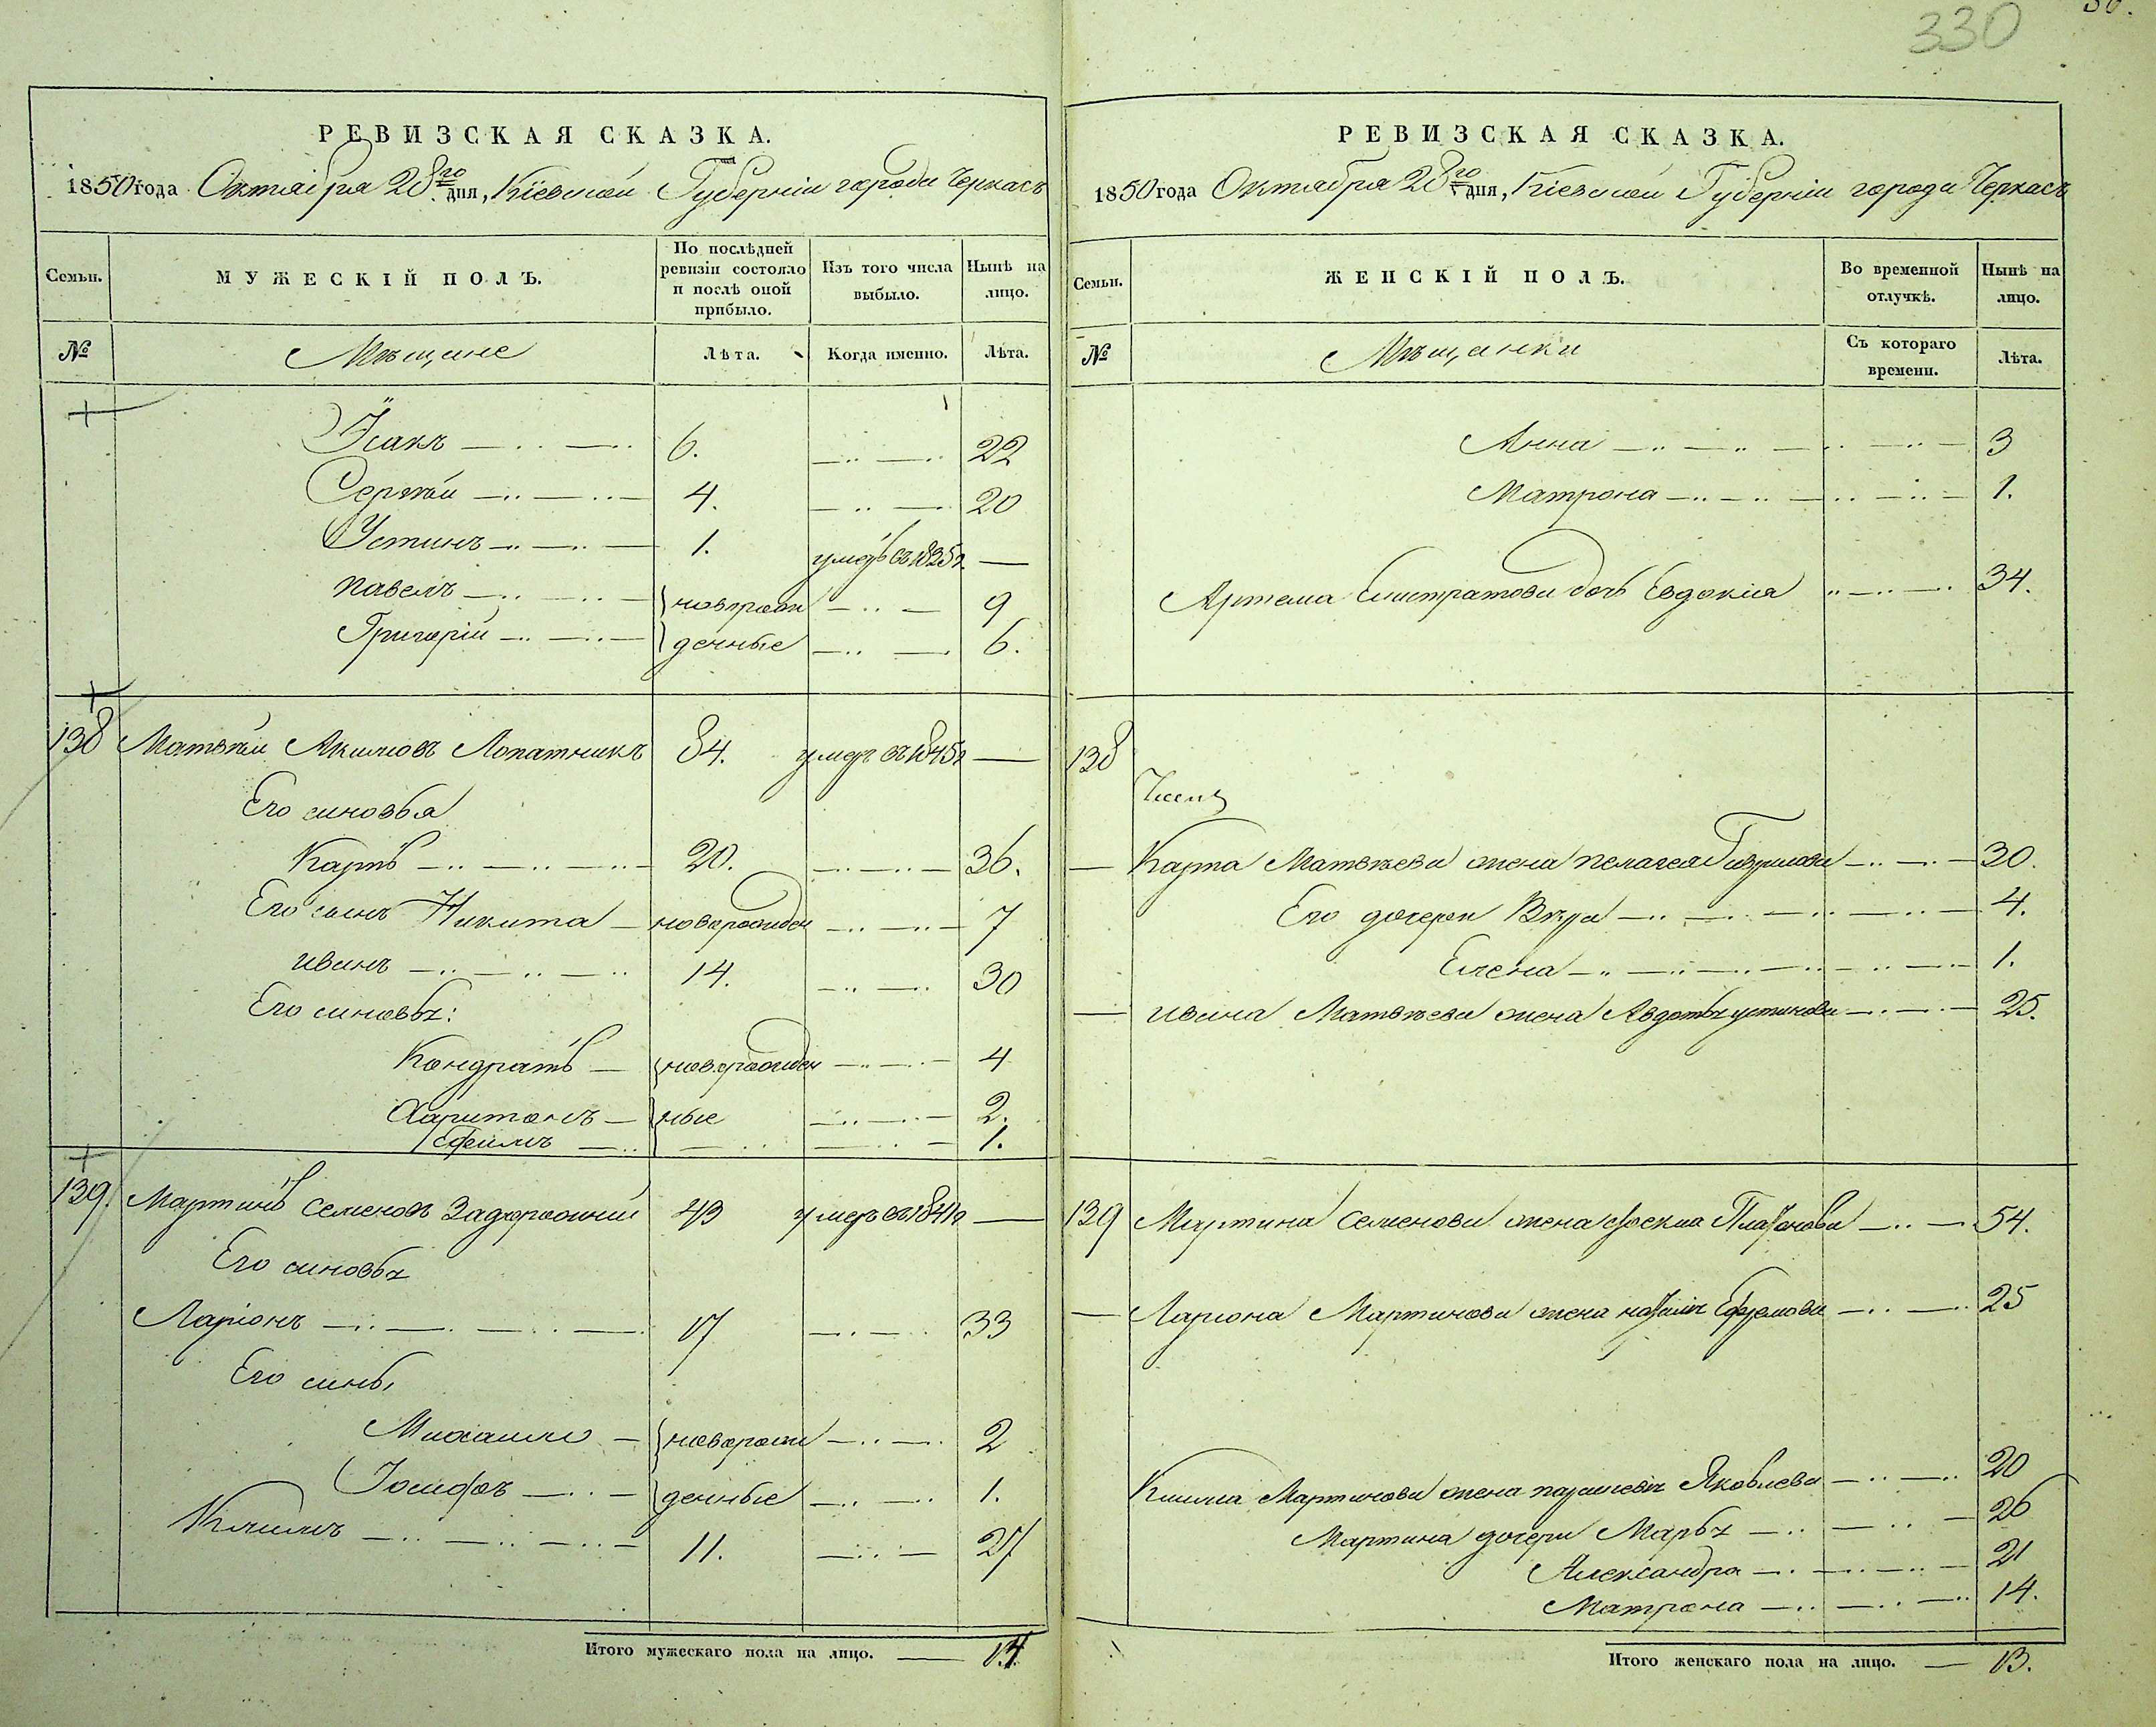 330
РЕВИЗСКАЯ СКАЗКА.
1850 года Октября 28го дня, Кіевской Губерніи города Черкасъ
Семьи.
МУЖЕСКІЙ ПОЛЪ.
По послѣдней ревизіи состояло и послѣ оной прибыло.
Изъ того числа выбыло.
Нынѣ на лицо.
№
Мѣщане
Лѣта.
Когда именно.
Лѣта.
Исакъ 6. 22
Сергѣй 4. 20
Устинъ 1. умеръ въ 1835г —
Павелъ новорож 9
Григорій денные 6.
138 Матвѣй Акимовъ Лопатникъ 84. умеръ въ 1845г —
Его синовья
Карпъ 20. 36.
Его синъ Никита новорожден 7
иванъ 14. 30
Его синовья:
Кондратъ новорожден 4
Харитонъ ные 2.
Ефимъ 1.
139. Мартинъ Семеновъ Задорожний 43 умеръ въ 1841г —
Его синовья
Ларіонъ 17 33
Его сины
Михаило новорож 2
Іосифъ денные 1.
Климъ 11. 27
Итого мужескаго пола на лицо. — 14
РЕВИЗСКАЯ СКАЗКА.
1850 года Октября 28го дня, Кіевской Губерніи города Черкасъ
Семьи.
ЖЕНСКІЙ ПОЛЪ.
Во временной отлучкѣ.
Нынѣ на лицо.
№
Мѣщанки
Съ котораго времени.
Лѣта.
Анна 3
Матрона 1.
Артема Елистратова дочь Евдокия 34.
138
Карпа Матвѣева жена пелагея Гаврилова 30.
Его дочери Вѣра 4.
Елена 1.
ивана Матвѣева жена Авдотья устинова 25.
139 Мартина Семенова жена Плафонова 54.
Лариона Мартинова жена Ефремова 25
Клима Мартинова жена Яковлева 20
Мартина дочери Марья 26
Александра 21
Матрона 14.
Итого женскаго пола на лицо. — 13.